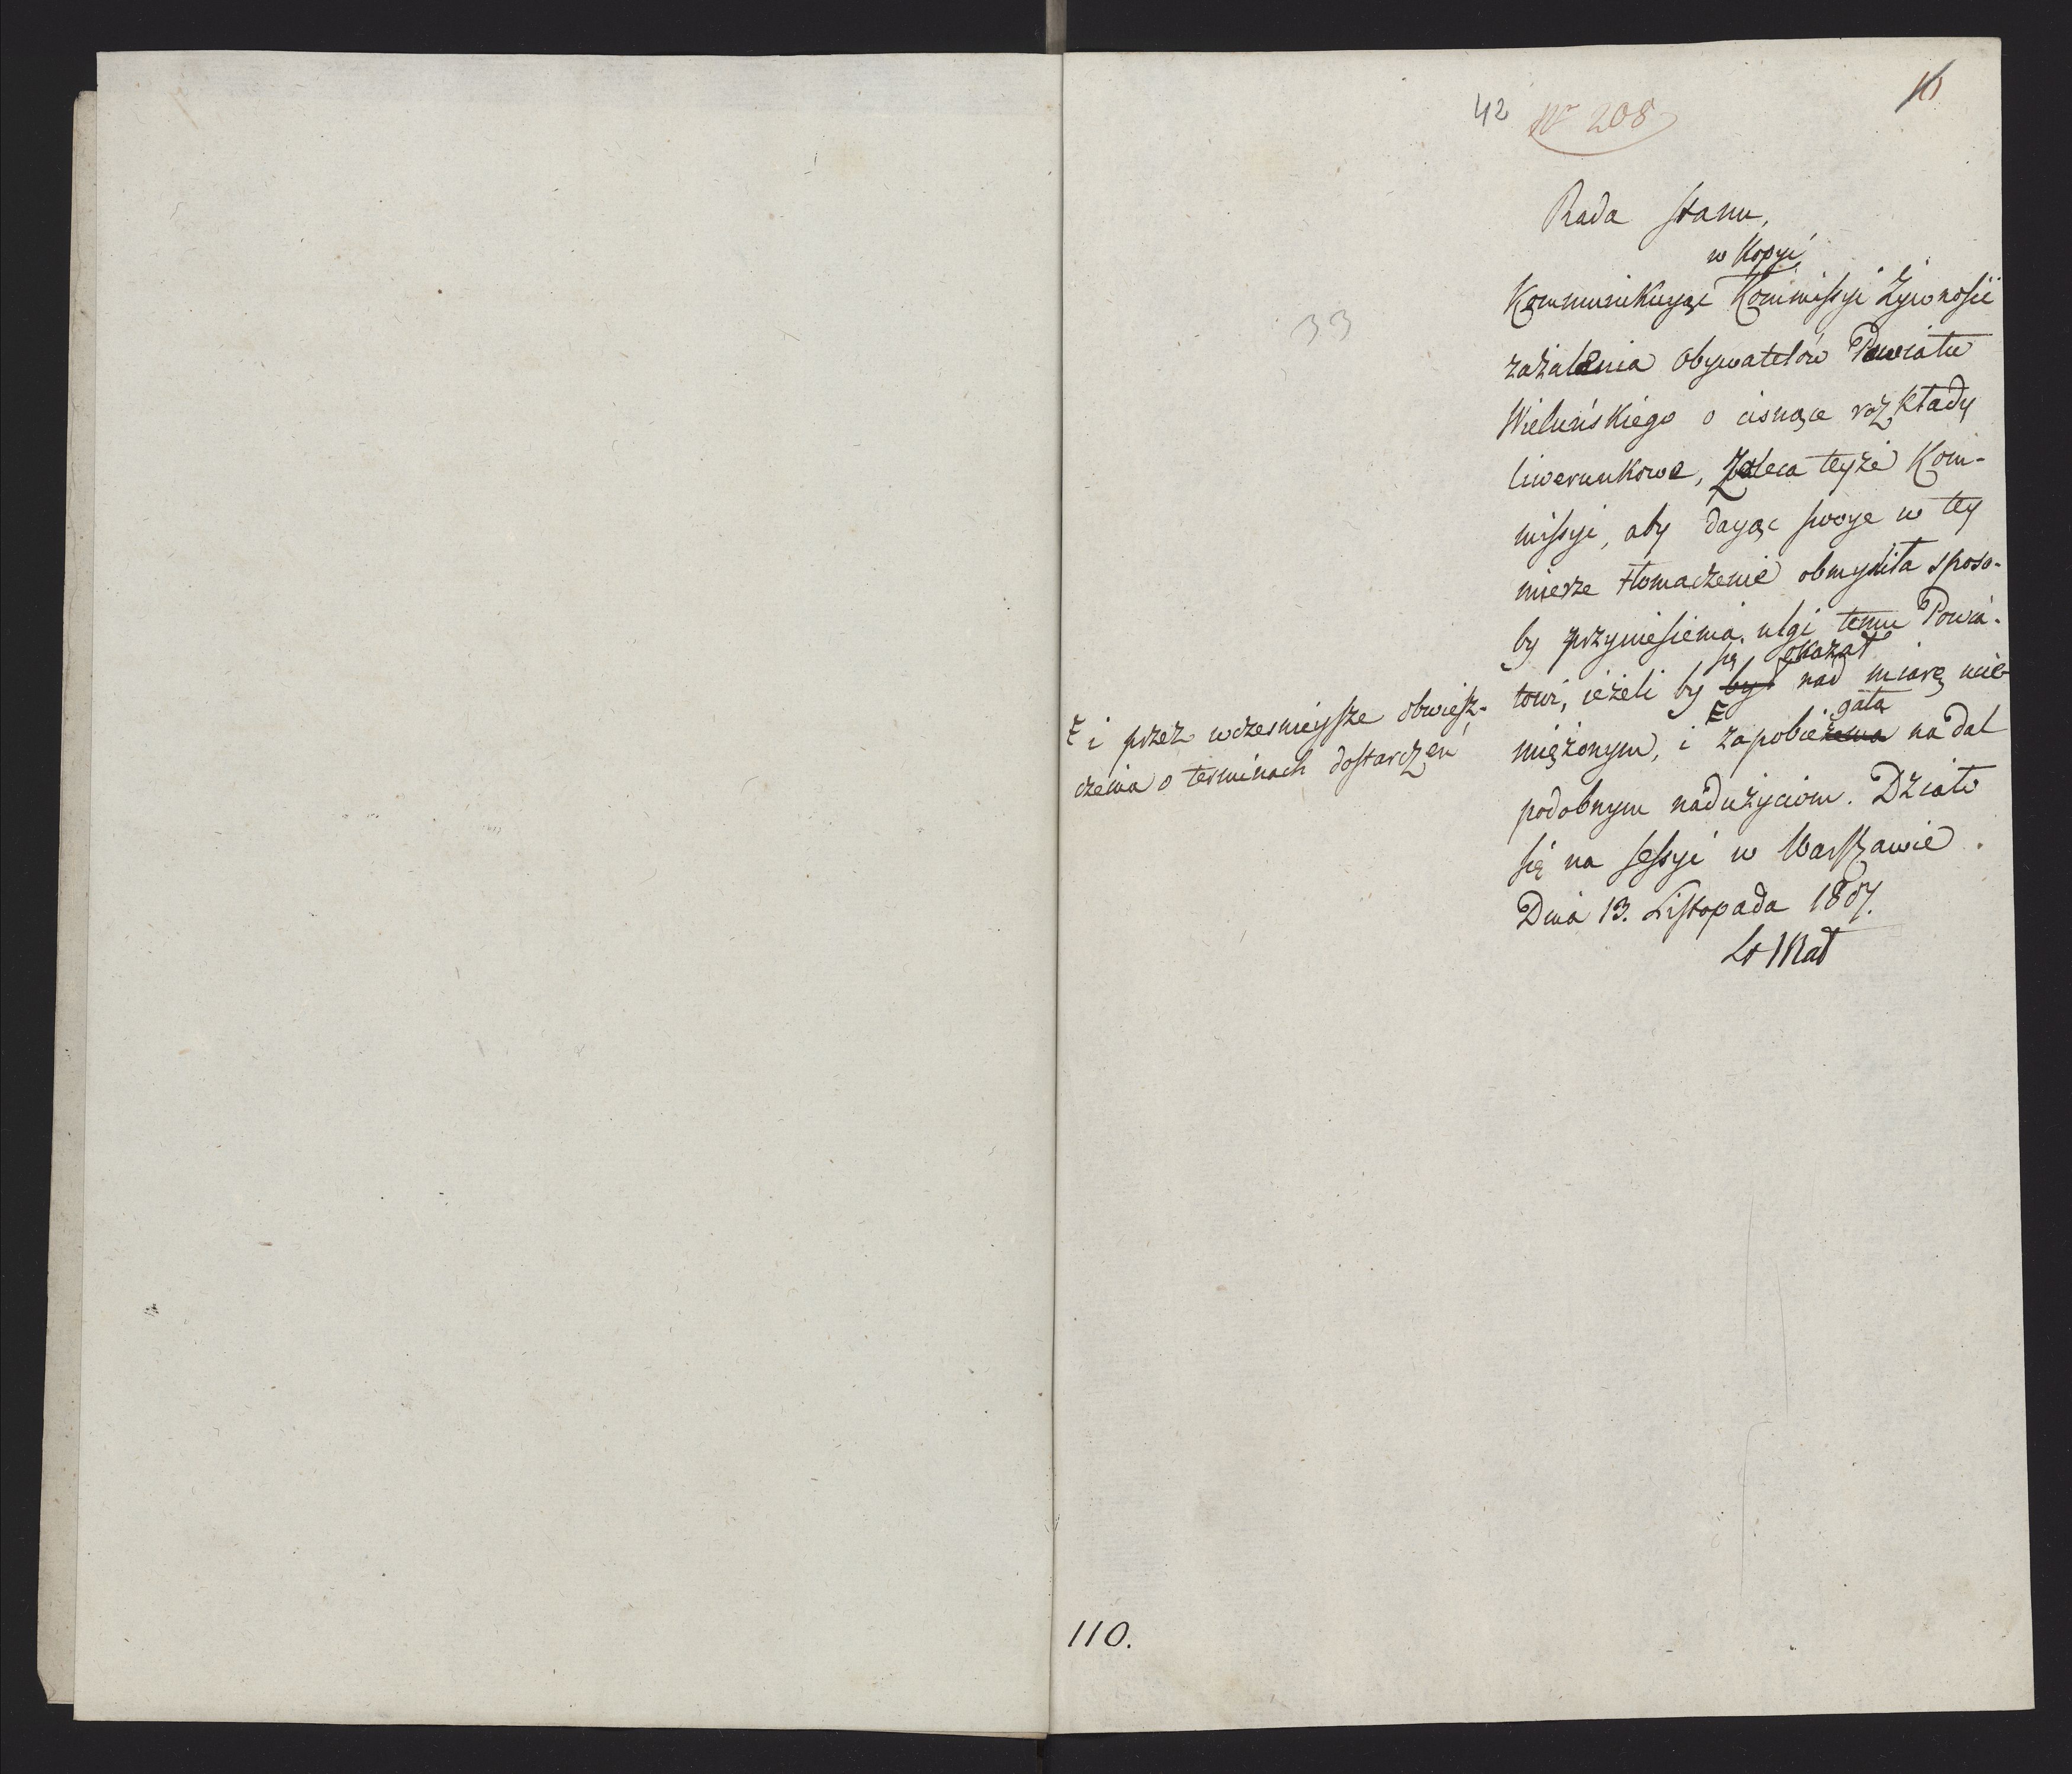 42 Nr 208
33
Rada Stanu,
w Kopyi
Kommunikuiąc Kommissyi Żywnosci
zażalenia Obywatelów Powiatu
Wieluńskiego o cisnące rozkłady
liwerunkowe, Zaleca teyże Kom-
missyi, aby daiąc swoye w tey
mierze tłomaczenie obmysliła sposo-
by przyniesienia ulgi temu Powia-
się okazał
towi, ieżeli by był nad miarę ucie-
gała
miężonym, i zapobieżenia nadal
podobnym nadużyciom. Działo
się na Sessyi w Warszawie
Dnia 13. Listopada 1807.
St Mał
i przez wcześnieysze obwiesz-
czenia o terminach dostarczeń
110.